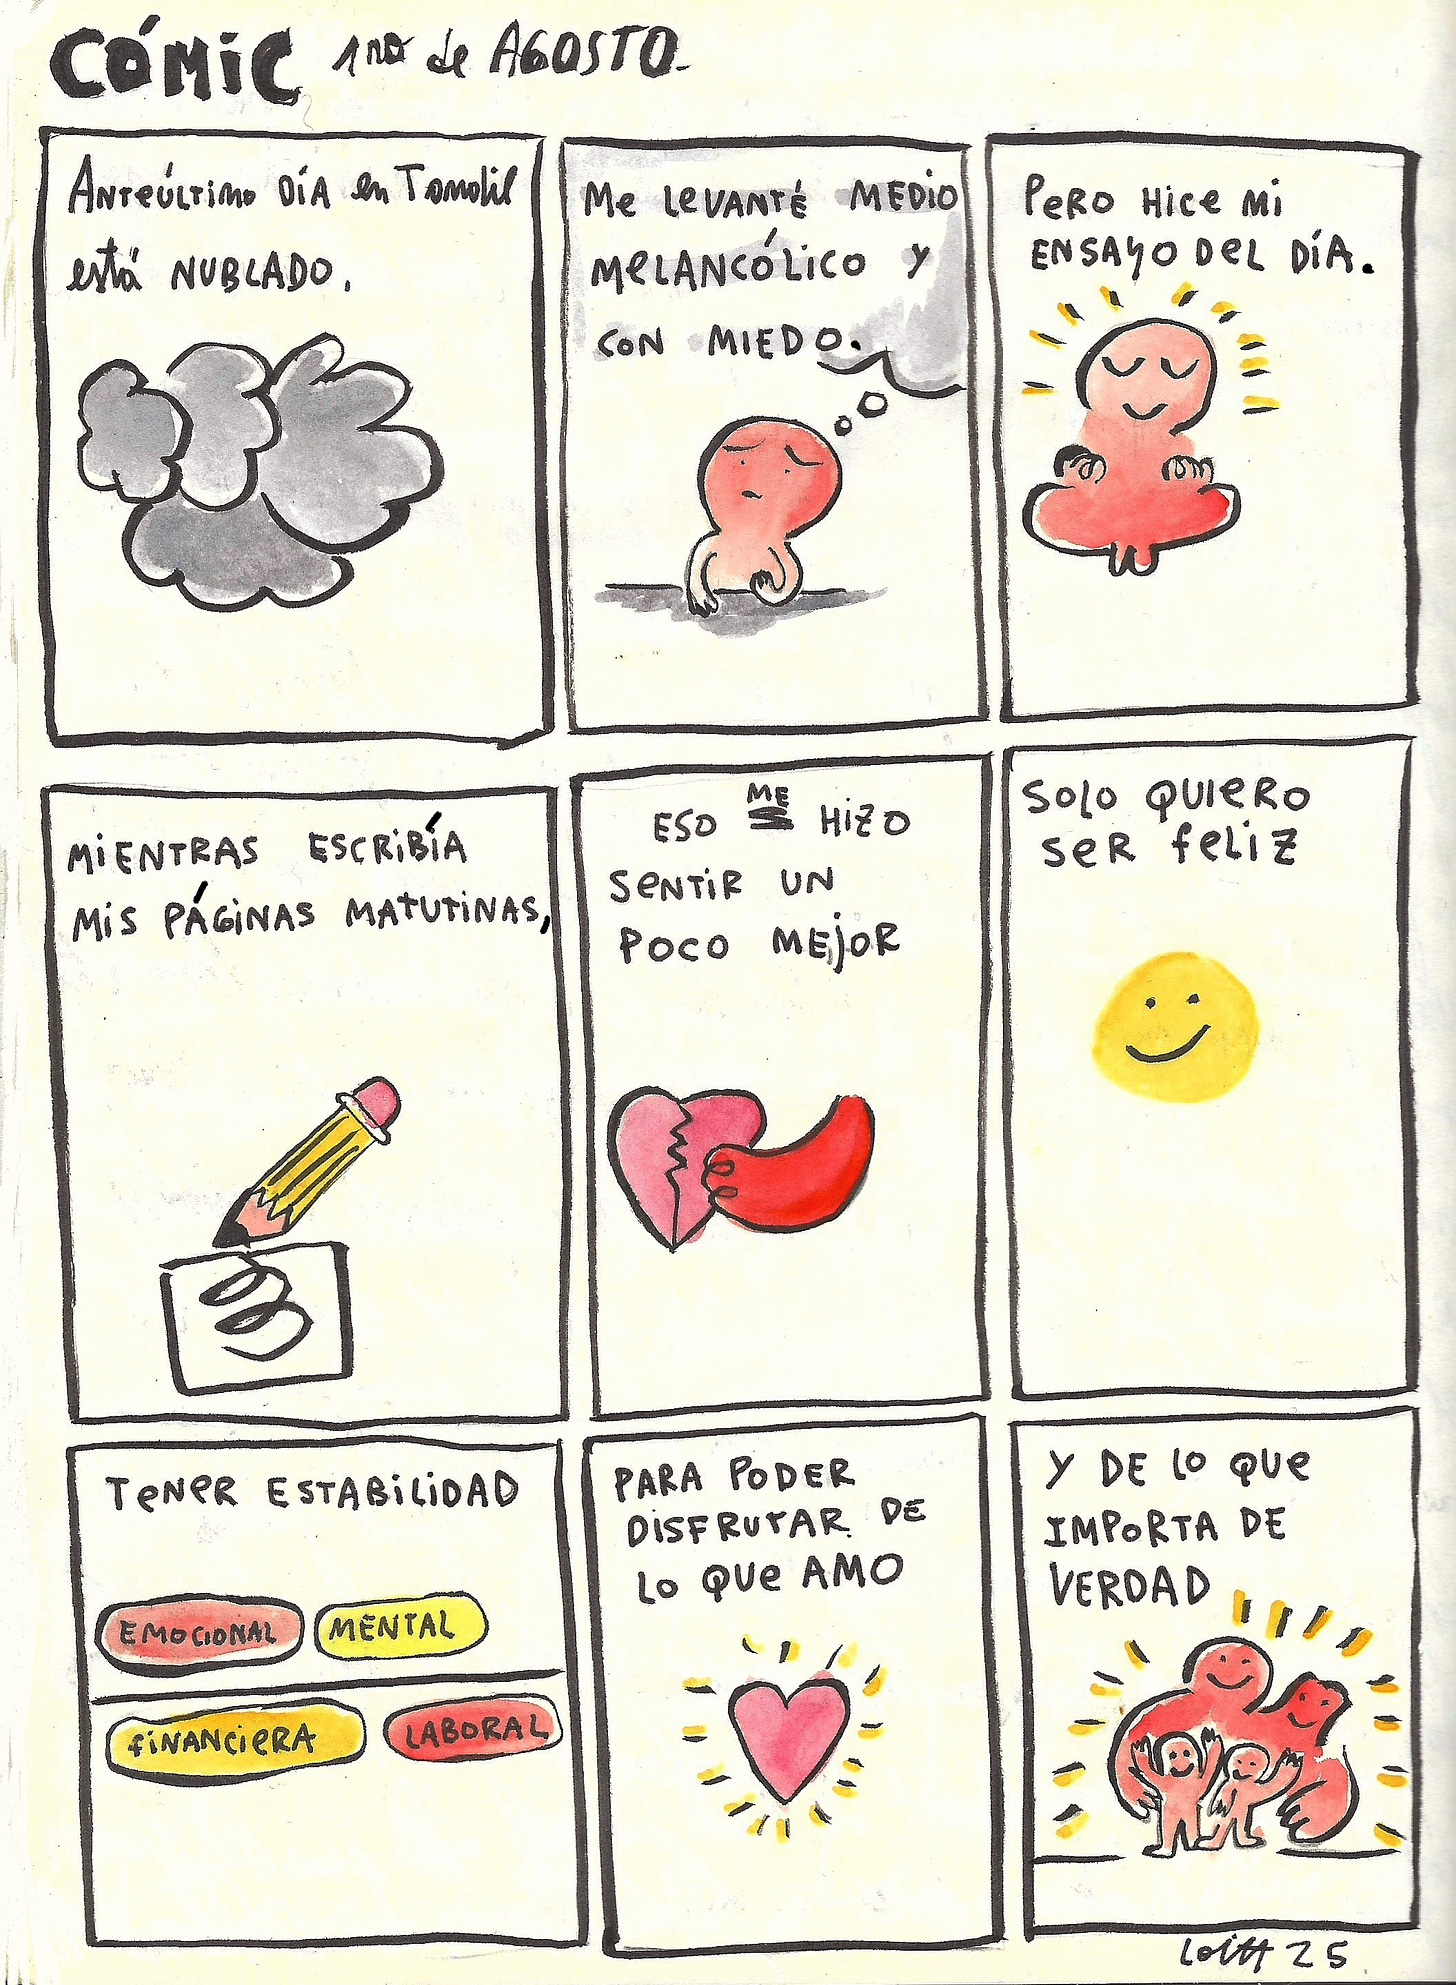 CÓMIC 1ro de AGOSTO.
ANTEÚLTIMO DÍA en Tomolil
está NUBLADO.
Me LEVANTÉ MEDIO
MELANCÓLICO Y
CON MIEDO.
PERO HICE MI
ENSAYO DEL DÍA.
MIENTRAS ESCRIBÍA
MIS PÁGINAS MATUTINAS,
ESO ME HIZO
SENTIR UN
POCO MEJOR
SOLO QUIERO
SER FELIZ
TENER ESTABILIDAD
EMOCIONAL MENTAL
FINANCIERA LABORAL
PARA PODER
DISFRUTAR DE
LO QUE AMO
Y DE LO QUE
IMPORTA DE
VERDAD
25